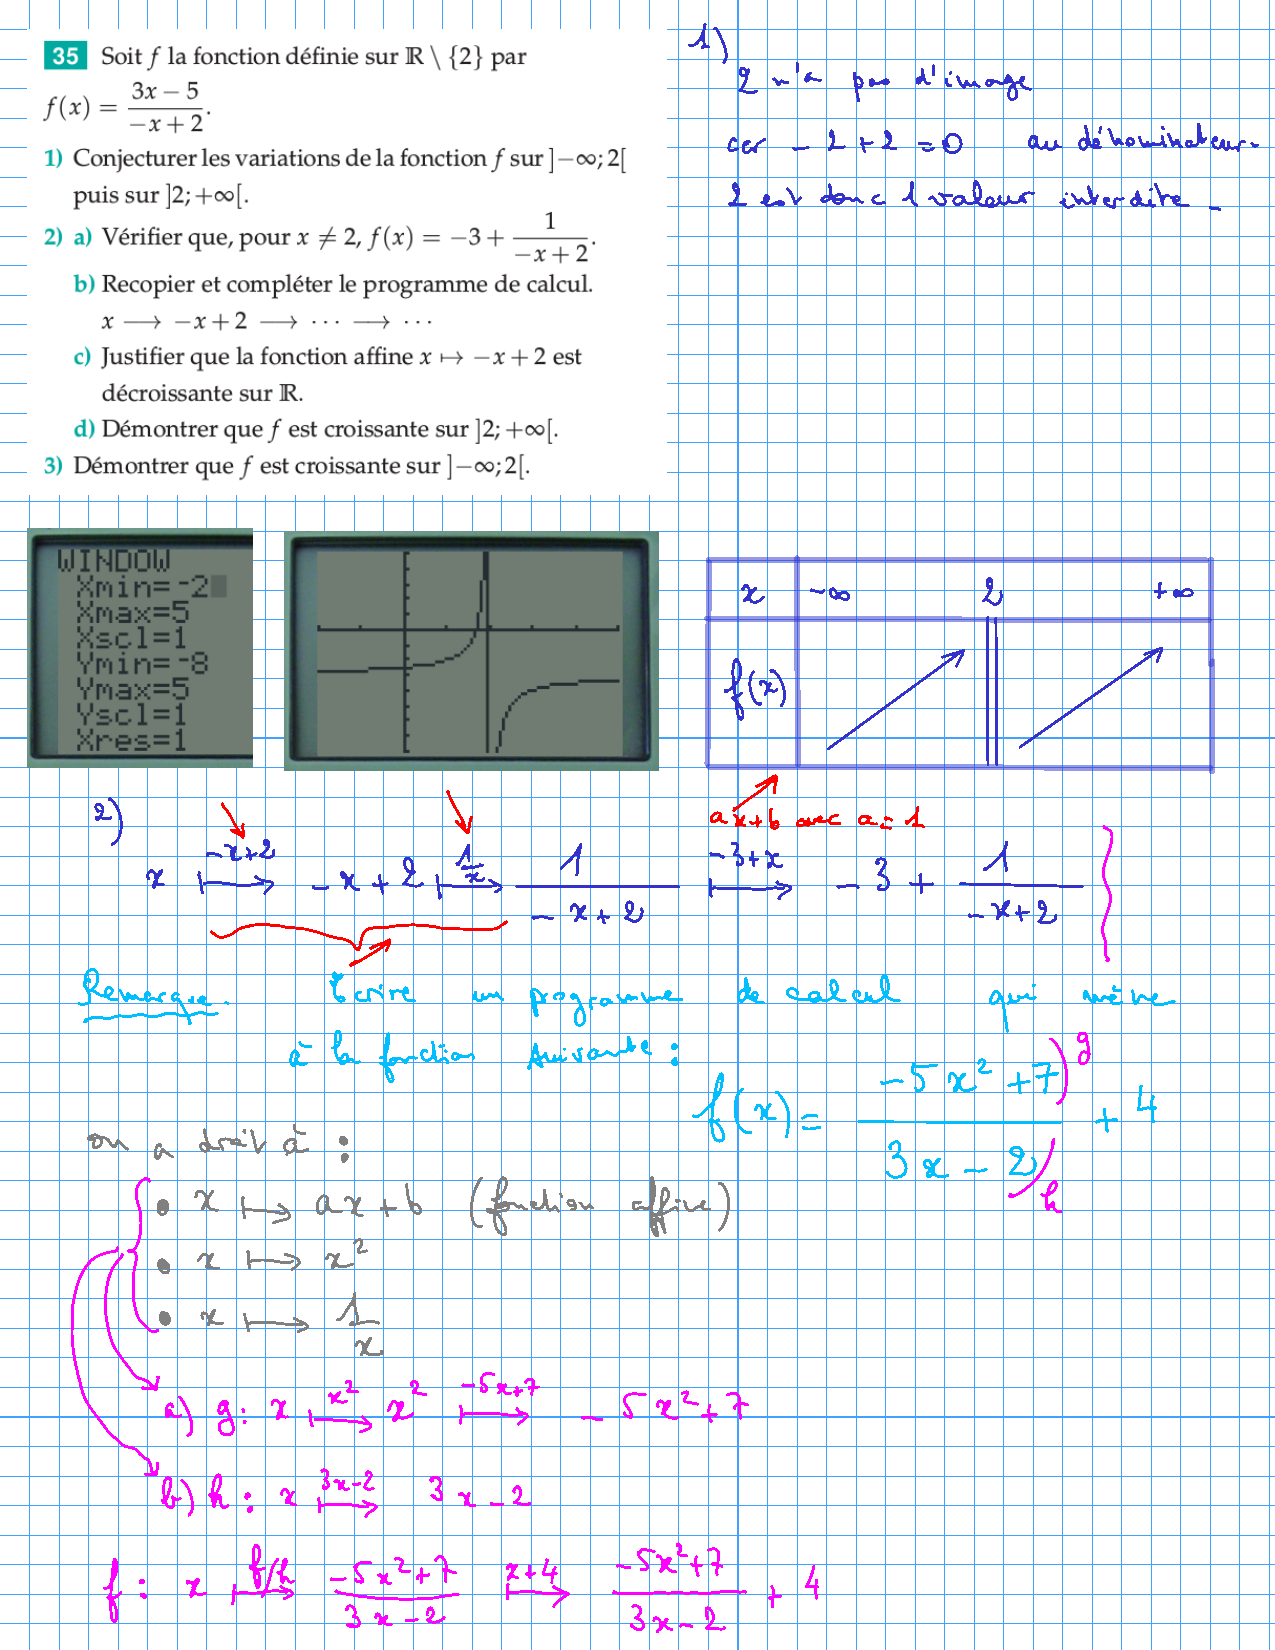 35 Soit f la fonction définie sur ℝ \ {2} par
f(x) = (3x − 5)/(−x + 2).
1) Conjecturer les variations de la fonction f sur ]−∞; 2[
puis sur ]2; +∞[.
2) a) Vérifier que, pour x ≠ 2, f(x) = −3 + 1/(−x + 2).
b) Recopier et compléter le programme de calcul.
x ⟶ −x + 2 ⟶ ··· ⟶ ···
c) Justifier que la fonction affine x ↦ −x + 2 est
décroissante sur ℝ.
d) Démontrer que f est croissante sur ]2; +∞[.
3) Démontrer que f est croissante sur ]−∞; 2[.
1)
2 n'a pas d'image
car − 2 + 2 = 0 au dénominateur.
2 est donc 1 valeur interdite.
WINDOW
Xmin=-2
Xmax=5
Xscl=1
Ymin=-8
Ymax=5
Yscl=1
Xres=1
x −∞ 2 +∞
f(x)
ax+b avec a=1
2)
−x+2 1/x −3+x
x ↦ −x+2 ↦ 1/(−x+2) ↦ −3 + 1/(−x+2)
Remarque. Ecrire un programme de calcul qui mène
à la fonction suivante :
f(x) = (−5x²+7)/(3x−2) + 4
g
h
on a droit à :
• x ↦ ax+b (fonction affine)
• x ↦ x²
• x ↦ 1/x
x² −5x+7
a) g: x ↦ x² ↦ −5x²+7
3x−2
b) h: x ↦ 3x−2
x+4
f: x ↦ (−5x²+7)/(3x−2) ↦ (−5x²+7)/(3x−2) + 4